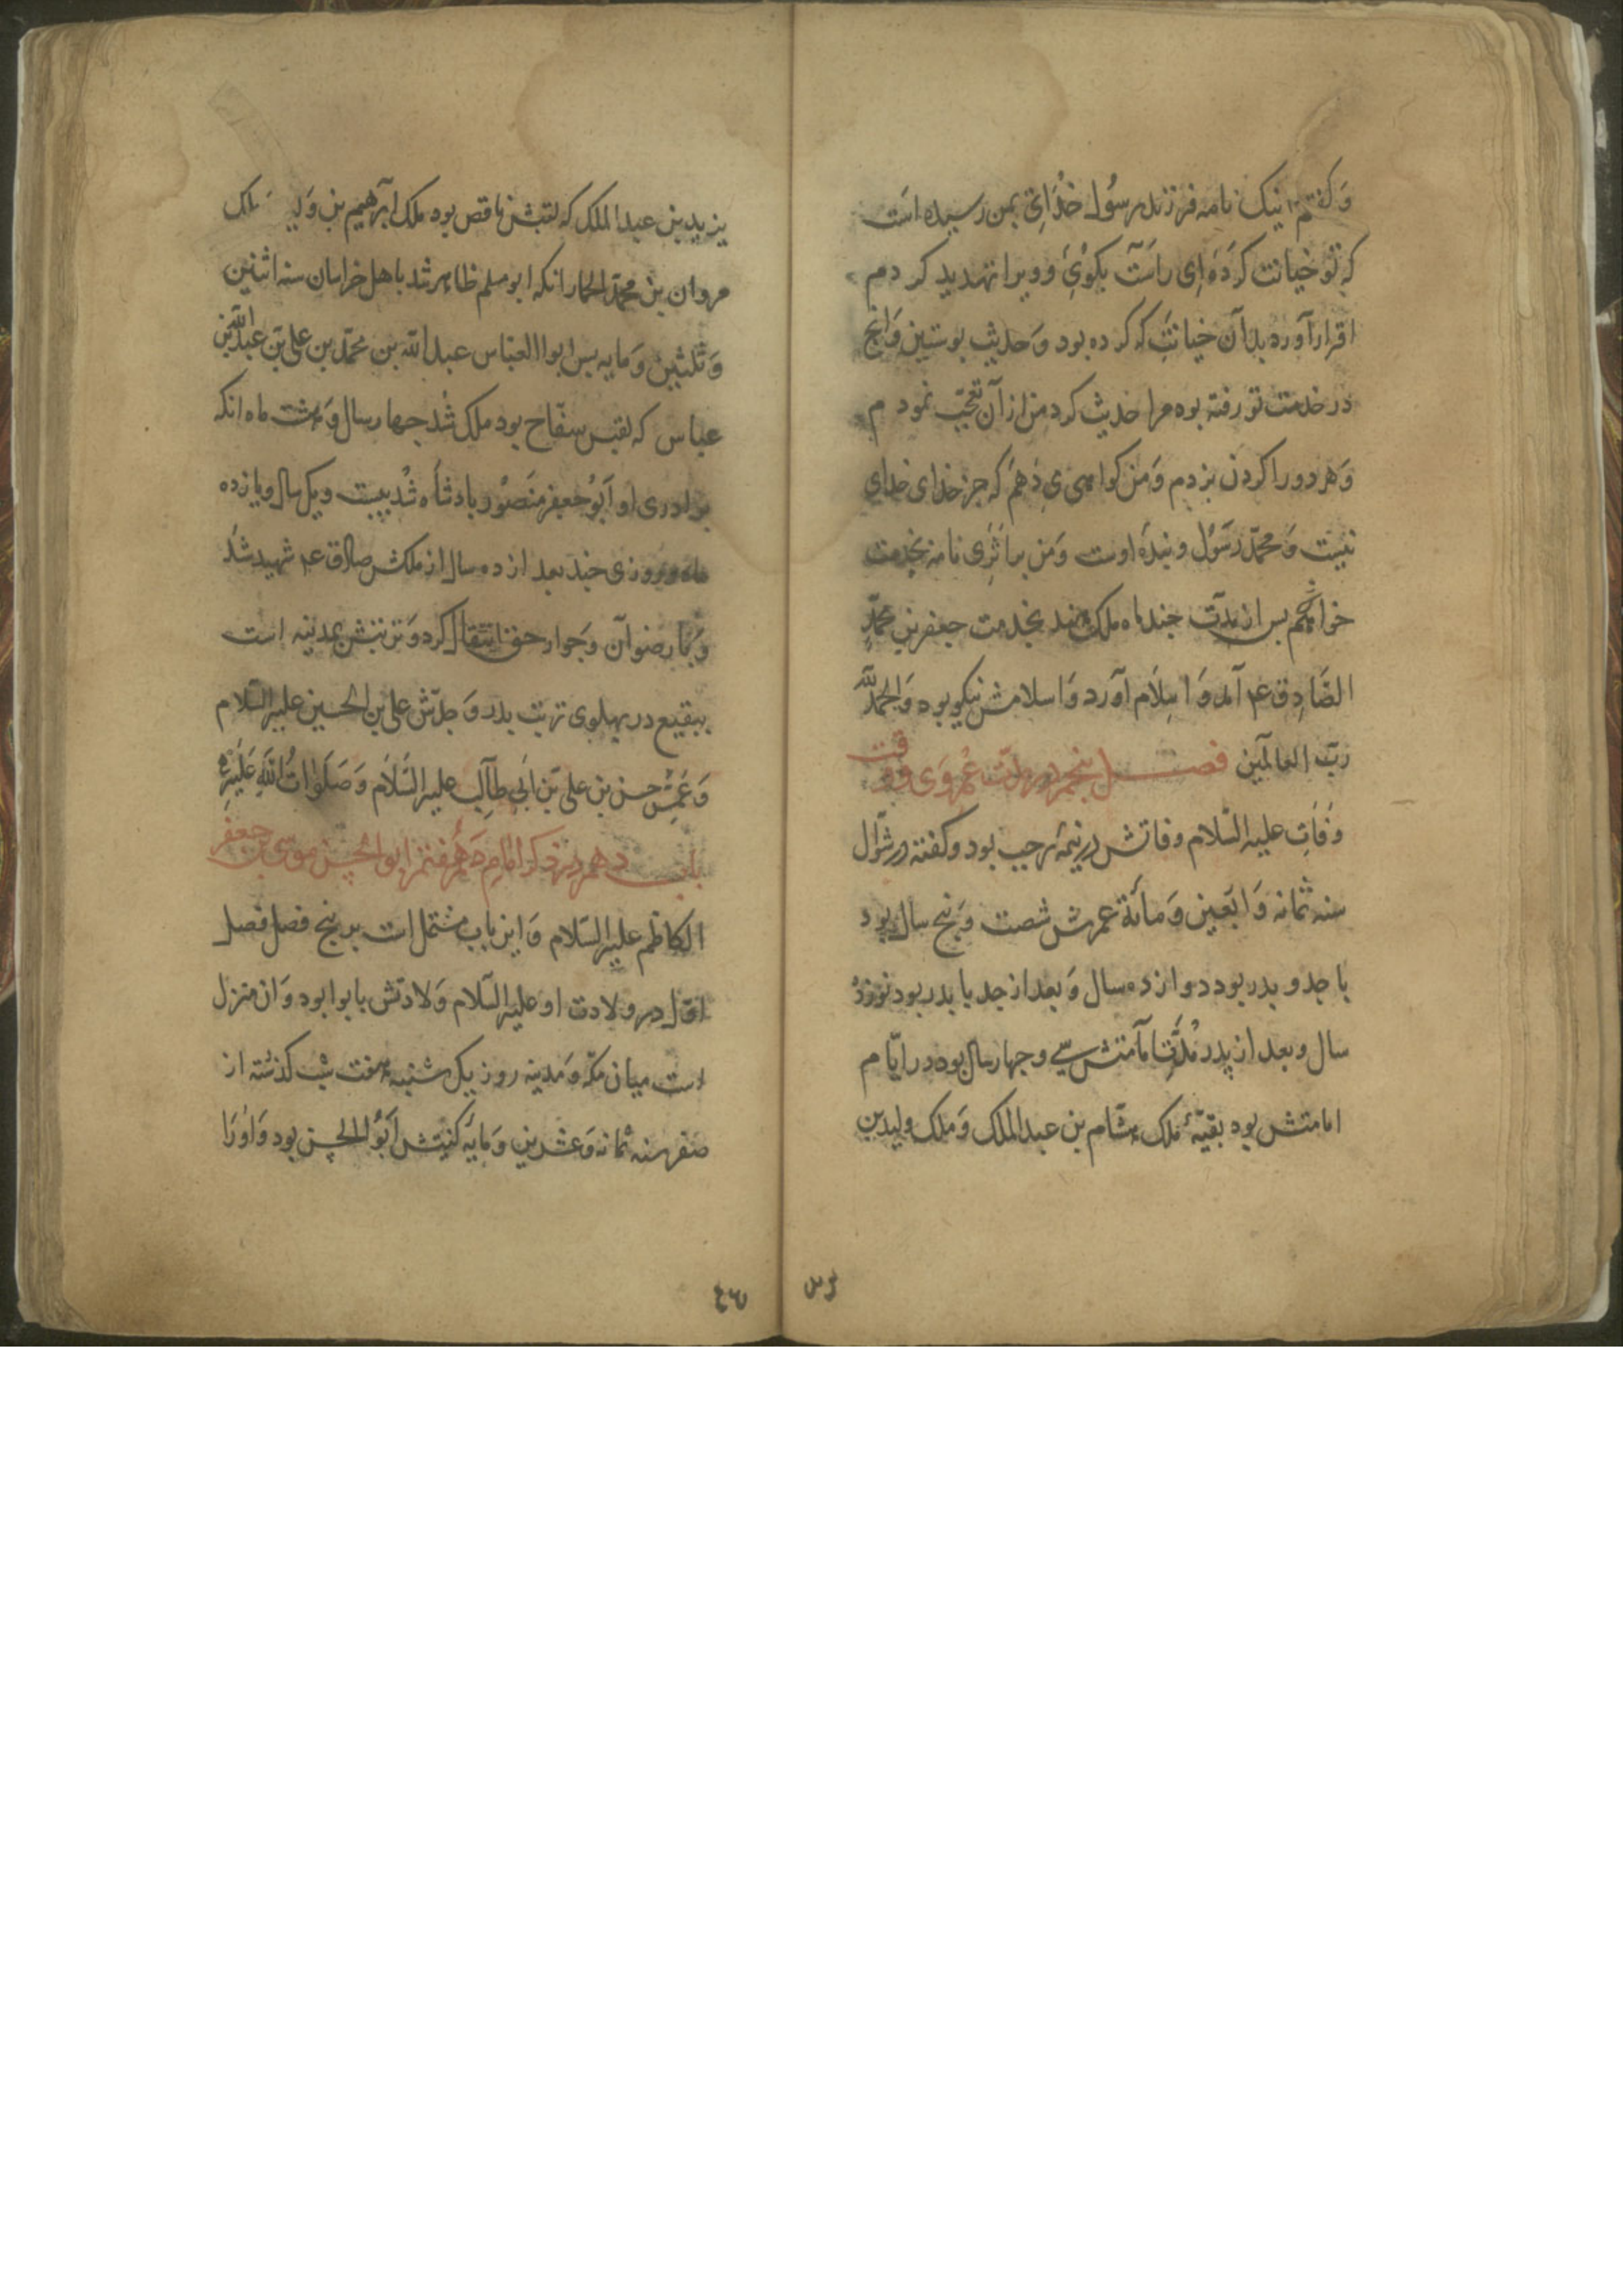 وَ كفتم اینک نامه فرزند رسُول خُدَای بمن رسیده است
که تو خیانت کَردَه اِی راست بکوُئِ و ویرا تهدید کردم
اقرار آورد بدآن خیانتِ که کرده بود وَ حدیث پوستین وَ انج
در خدمت تو رفته بود مرا حدیث کرد من از آن تعجّب نمودم
وَ هر دو را کردن بزدم وَ من کواهی ی دَهم که جز خدای خدای
نیست وَ محمّد رسَوُل و بندهٔ اوست وَ من بر اثرِی نامه بخدمت
خواهم پس از مدّت چند ماه ملک هند بخدمت جعفر بن محمّدٍ
الصَّادِق ع م آمد وَ اسِلَام آورد وَ اسلامش نیکو بود وَ الحمدُ للّٰه
ربّ العالمین فصل پنجم در مدّت عمر وَی و وقت
وفَات علیه السّلام وفاتش در نیمهٔ رجب بود و کفته در شوّال
سنه ثمانه وَ اَبعین وَ مأئة عمرش شصت وَ پنج سال بود
با جد و پدر بود دوازده سال وَ بعد از جد با پدر بود نوزدْ
سال و بعد از پدر مُدّت امآمتش سی و چهار سال بود در ایّام
امامتش بود بقیّهٔ ملک هشام بن عبد الملک وَ ملک ولید بن
یزید بن عبد الملک که لقبش ناقص بود ملک ابرٓهیم بن وَلید ملک
مروان بن محمّد الحمار انکه ابو مسلم ظاهر شد باهل خراسان سنه اثنین
وَ ثلثین وَ مایه پس ابوا العبّاس عبد اللّه بن محمّد بن علی بن عبد اللّه بن
عباس که لقبس سفّاح بود ملک شُد چهار سال وَ هشت ماه انکه
برادری او اَبوُ جعفر منصُور پادشَاه شُد بیست و یک سال و یازده
ماه و روزی چند بعد از ده سال از ملکش صادق ع م شهید شُد
وَ بما رضوآن وَ جوار حق انتقال کرد وَ تربتش بمدینه است
ببقیع در پهلوی تربت پدر وَ جدّش علی بن الحسین علیه السّلام
وَ عَمِّش حسن بن علی بن اَبی طآلِب علیه السَّلَام وَ صَلَوٰاتُ اللّٰهِ عَلَیهِ
باب دهم در ذکر امام هفتم ابو الحسن موسی بن جعفر
الکاظم علیه السّلام وَ این باب مشتمل است بر پنج فصل فصل
اوّل در ولادت او علیه السّلام وَلادتش بابوا بود وَ ان منزل
است میان مکّه وَ مدینه روز یک شنبه هفت شب کذشته از
صفر سنه ثمانه وَ عشرین وَ مایَه کنیتش اَبوُ الحسن بود وَ اوُرَا